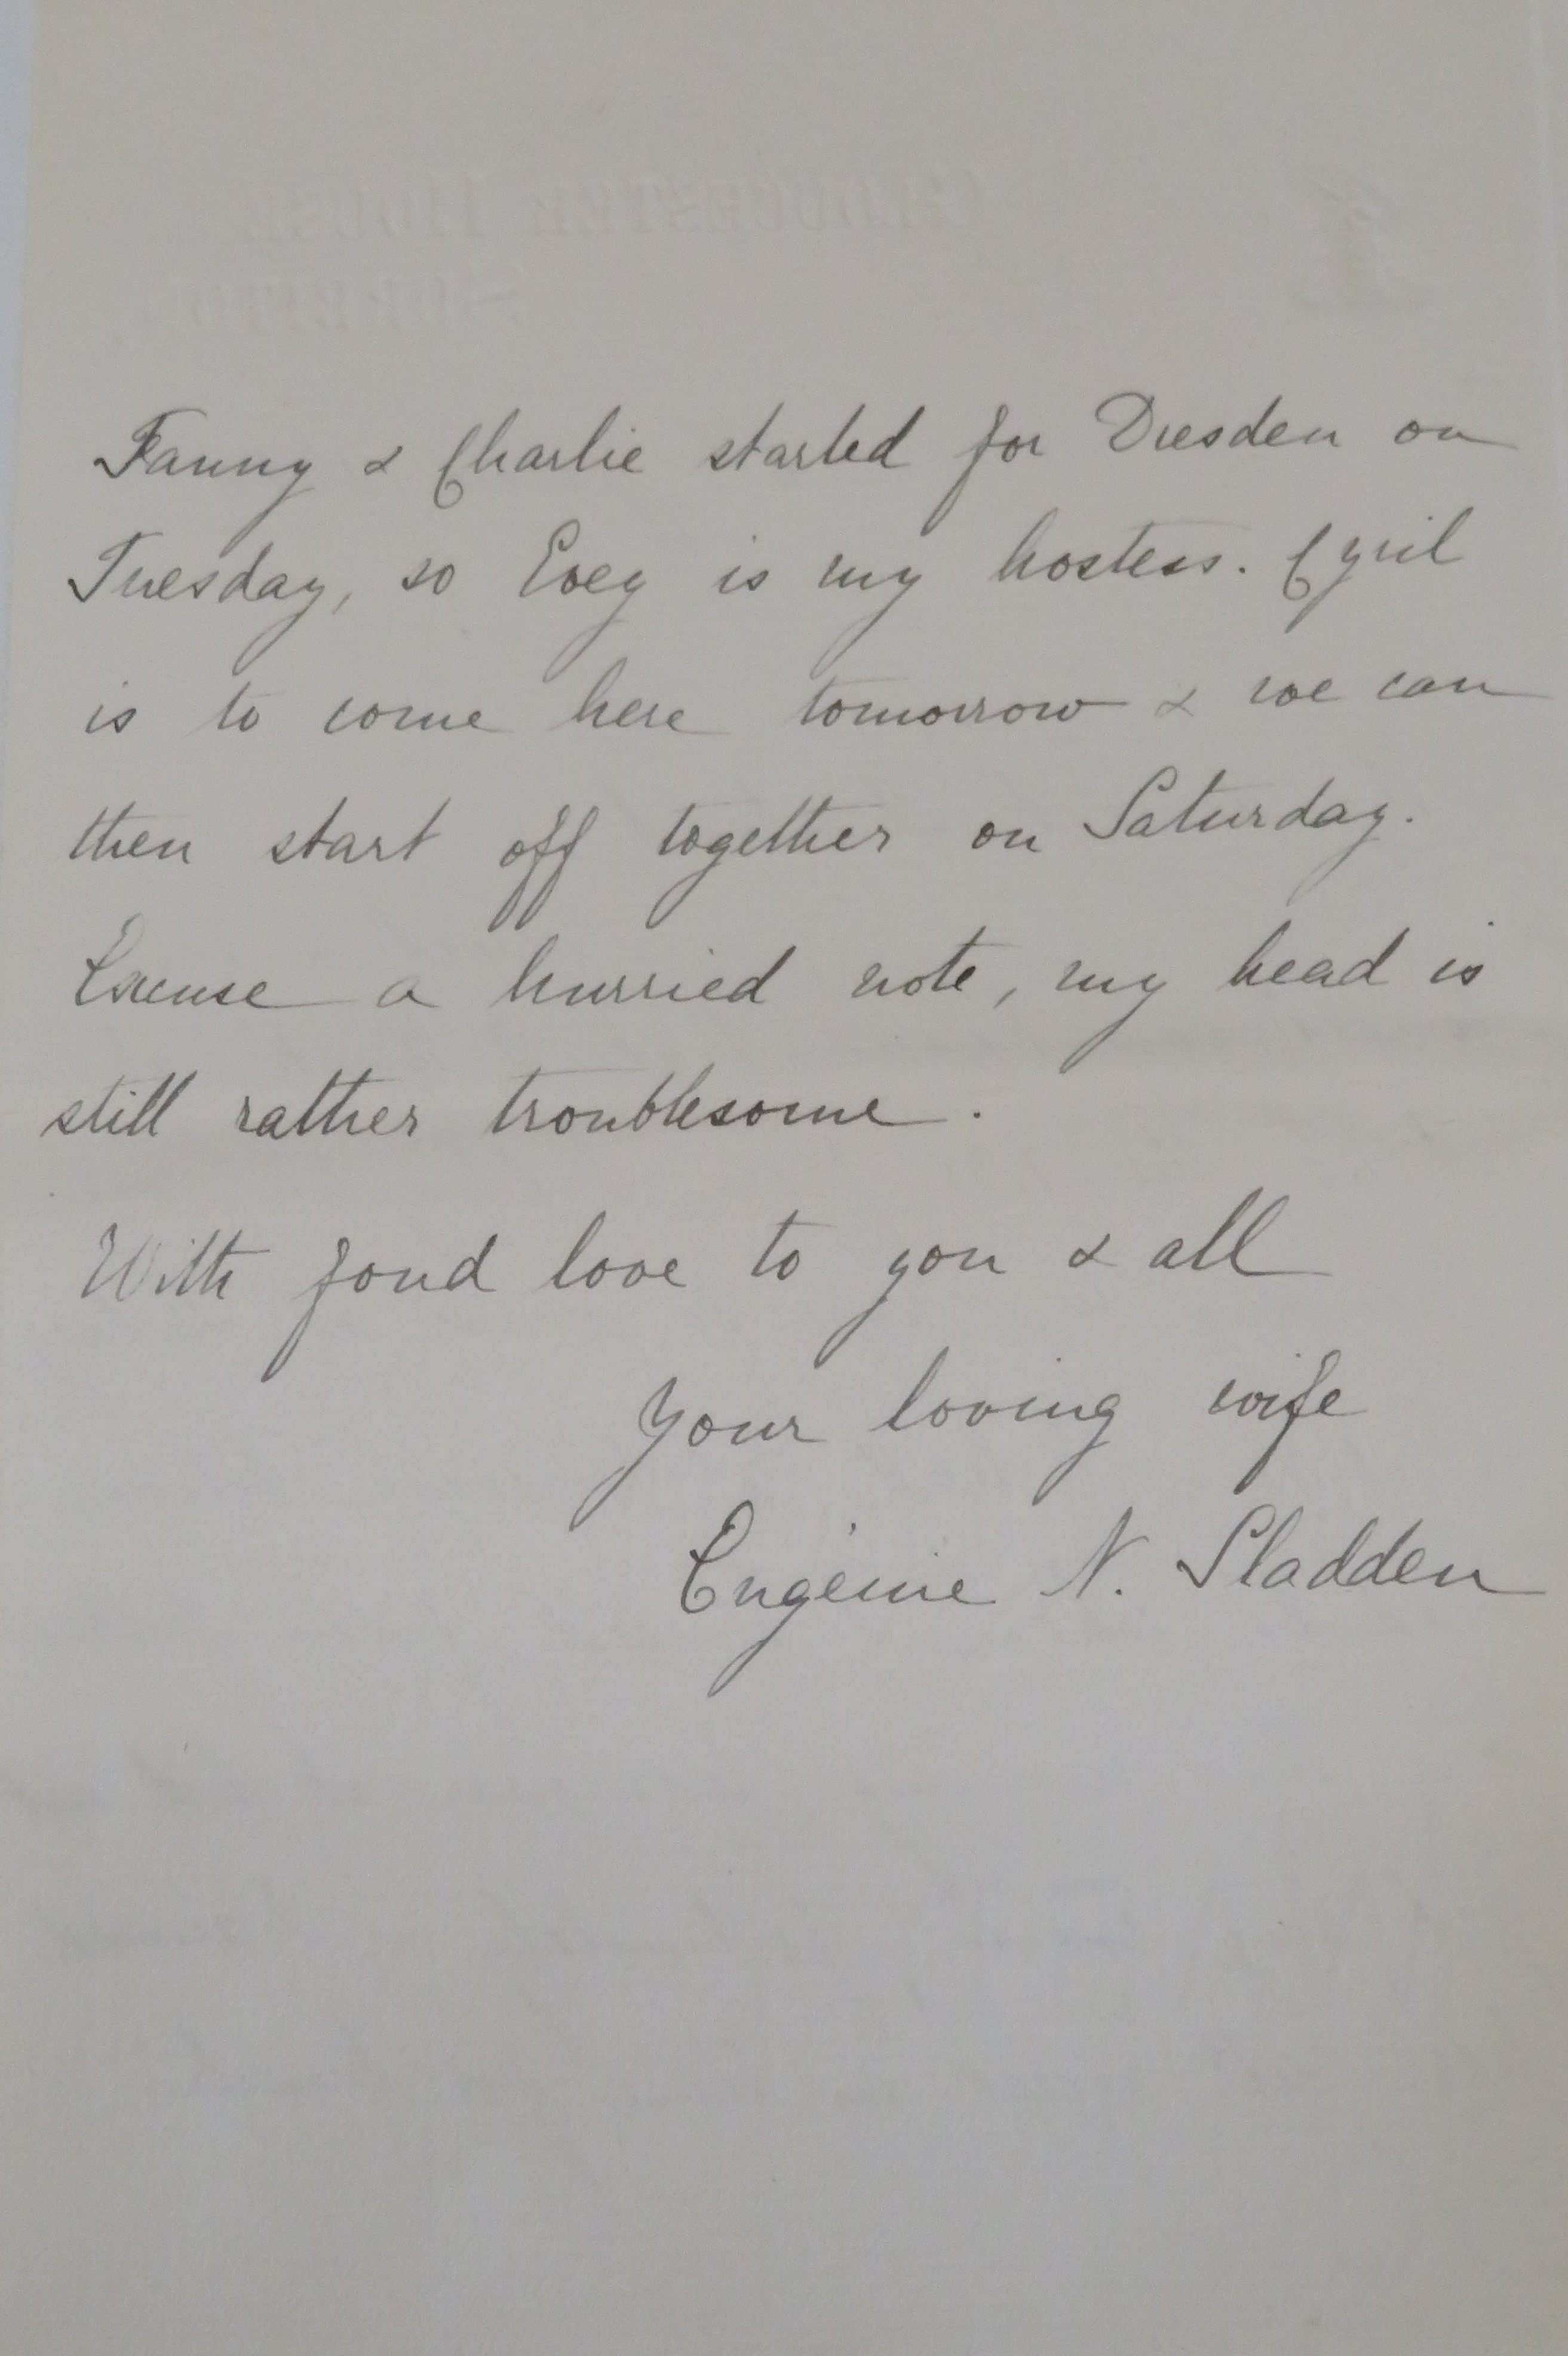 Fanny & Charlie started for Dresden on
Tuesday, so Evey is my hostess. Cyril
is to come here tomorrow & we can
then start off together on Saturday.
Excuse a hurried note, my head is
still rather troublesome.
With fond love to you & all
Your loving wife
Eugénie N. Sladden